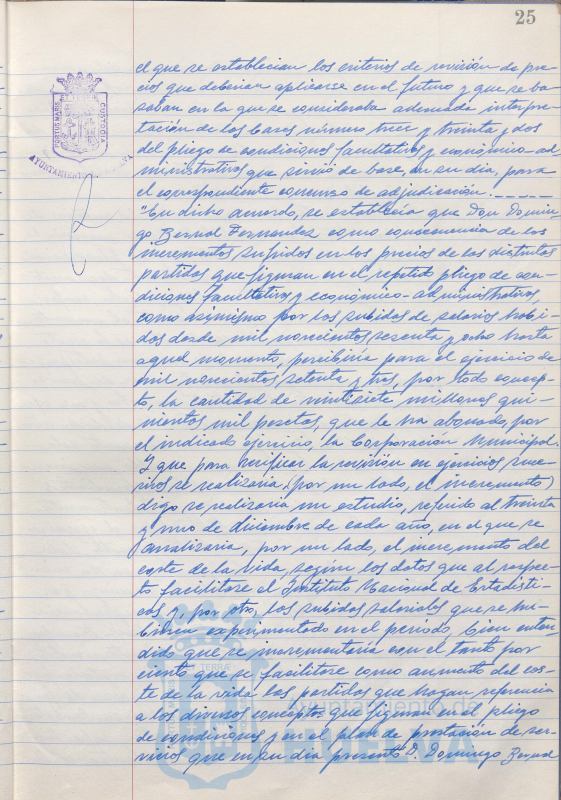 25
PORTUS MARIS
CUSTODIA
AYUNTAMIENTO
el que se establecian los criterios de revisión de pre-
cios que deberian aplicarse en el futuro y que se ba-
saban en la que se consideraba adecuada interpre-
tación de las bases número trece y treinta y dos
del pliego de condiciones facultativas y económico-ad-
ministrativas que sirvió de base, en su dia, para
el correspondiente concurso de adjudicación. -----
"En dicho acuerdo, se establecia que Don Domin-
go Bernal Fernandez como consecuencia de los
incrementos sufridos en los precios de las distintas
partidas que figuran en el repetido pliego de con-
diciones facultativas y económico-administrativas,
como asimismo por las subidas de salarios habi-
das desde mil novecientos sesenta y ocho hasta
aquel momento, percibiria para el ejercicio de
mil novecientos setenta y tres, por todo concep-
to, la cantidad de veintisiete millones qui-
nientas mil pesetas, que le ha abonado, por
el indicado ejercicio, la Corporación Municipal.
Y que para verificar la revisión en ejercicios suce-
sivos se realizaria, (por un lado, el incremento)
digo se realizaria un estudio, referido al treinta
y uno de diciembre de cada año, en el que se
analizaria, por un lado, el incremento del
coste de la vida, según los datos que al respec-
to facilitase el Instituto Nacional de Estadisti-
ca, y, por otro, las subidas salariales que se hu-
biesen experimentado en el periodo, bien enten-
dido que se incrementaria con el tanto por
ciento que se facilitase como aumento del cos-
te de la vida las partidas que hagan referencia
a los diversos conceptos que figuran en el pliego
de condiciones y en el plan de prestación de ser-
vicios que en su dia presentó D. Domingo Bernal
TERRÆ
Ayuntamiento de